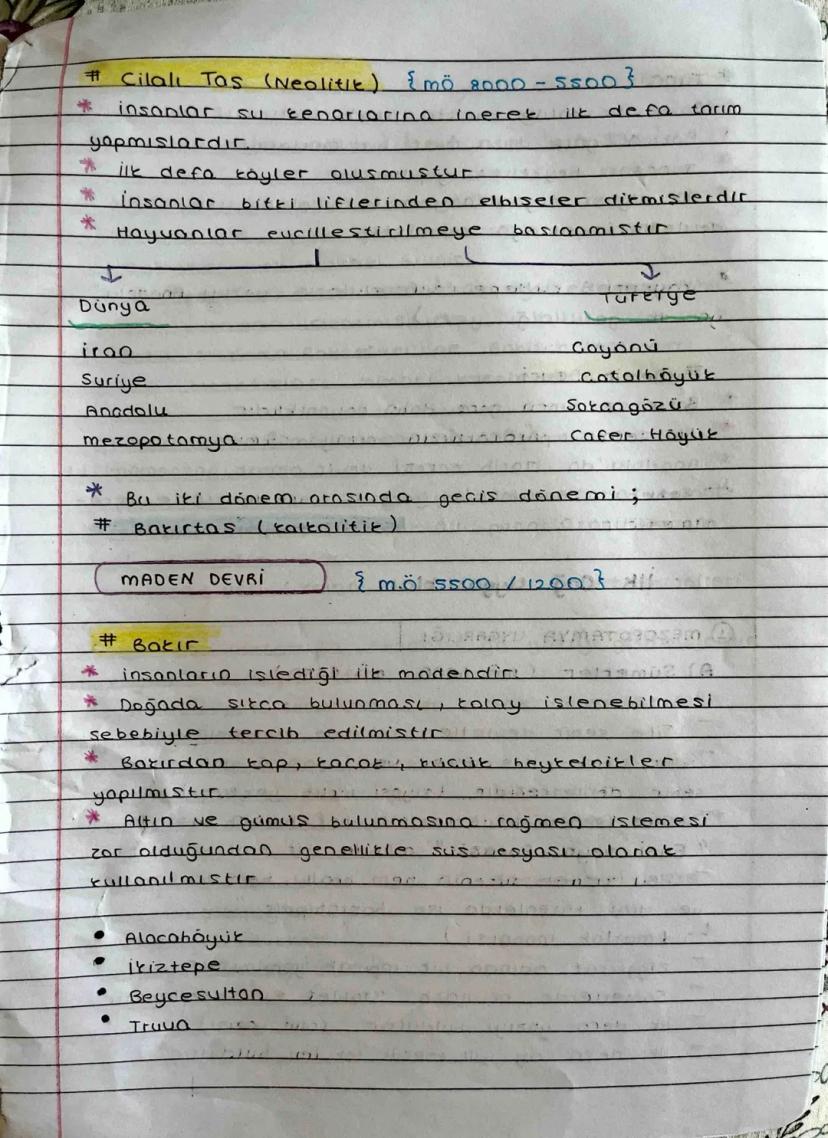 # Cilalı Tas (Neolitik) {mö 8000 - 5500}
* insanlar su kenarlarına inerek ilk defa tarım
yapmıslardır.
* ilk defa köyler olusmustur
* insanlar bitki liflerinden elbiseler dikmislerdir
* Hayvanlar evcillestirilmeye baslanmıstır
Dünya Türkiye
iran Cayönü
Suriye Catalhöyük
Anadolu Sakcagözü
mezopotamya Cafer Höyük
* Bu iki dönem arasında gecis dönemi ;
# Bakırtas (kalkolitik)
MADEN DEVRİ { m.ö 5500 / 1200 }
# Bakır
* insanların islediği ilk madendir.
* Doğada sıkca bulunması, kolay islenebilmesi
sebebiyle tercih edilmistir
* Bakırdan kap, kacak, kücük heykelcikler
yapılmıstır.
* Altın ve gümüs bulunmasına rağmen islemesi
zor olduğundan genellikle süs esyası olarak
kullanılmıstır
• Alacahöyük
• ikiztepe
• Beycesultan
• Truva